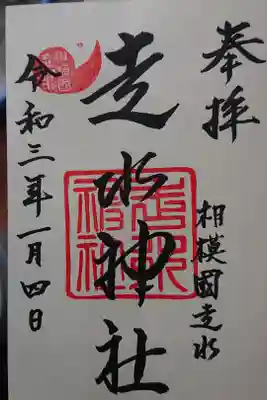 奉拝
相模國走水
走水神社
走水神社
令和三年一月四日